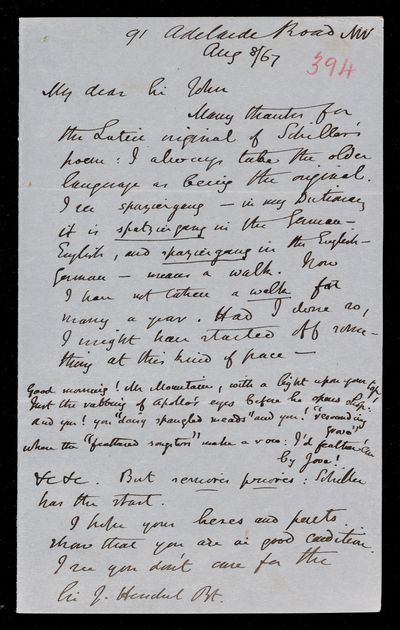 91 Adelaide Road NW
Aug 8/67
394
My dear Sir John
Many thanks for
the Latin original of Schiller's
poem: I always take the older
language as being the original.
I see spaziergang – in my Dictionary
it is spatziergang in the German –
English, and spaziergang in the English –
German – means a walk. Now
I have not taken a walk for
many a year. Had I done so,
I might have started off some-
thing at this kind of pace –
Good morning! Mr Mountain, with a light upon your top!
Just the rubbing of Apollo's eyes before he opens shop:
and you! you "daisy spangled meads" and you! "resounding
grove"
where the "feathered songsters" make a row: I'd feather 'em
by Jove!
&c &c. But seniores priores: Schiller
has the start.
I hope your hexes and pents.
show that you are in good condition.
I see you don't care for the
Sir J. Herschel Bt.